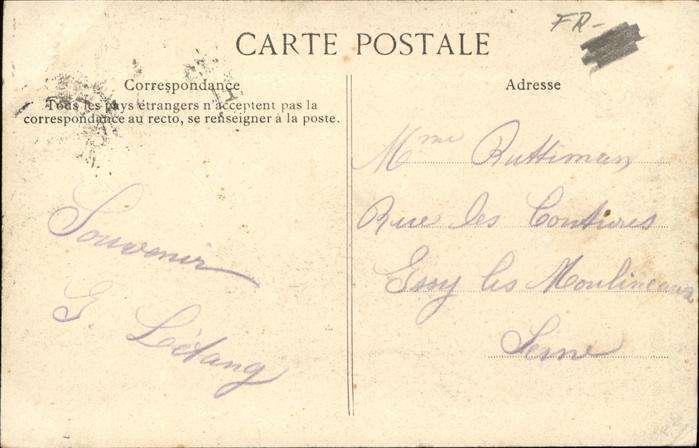 FR-
CARTE POSTALE
Correspondance
Tous les pays étrangers n'acceptent pas la
correspondance au recto, se renseigner à la poste.
Souvenir
G Létang
Adresse
Mme Ruttiman
Rue les
Issy les Moulineaux
Seine